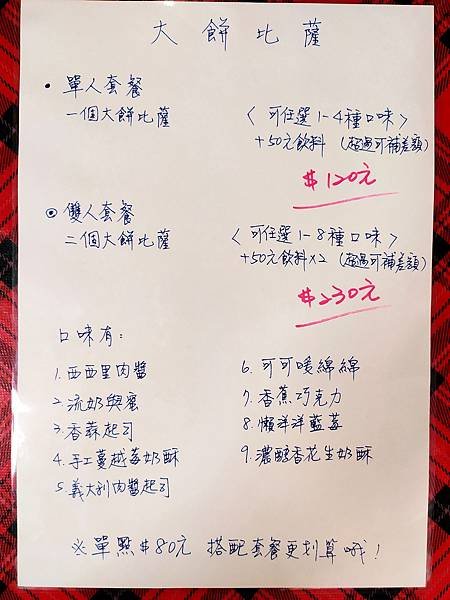 大餅比薩
• 單人套餐
一個大餅比薩 〈可任選1-4種口味〉
+50元飲料 (超過可補差額)
$120元
◎ 雙人套餐
二個大餅比薩 〈可任選1-8種口味〉
+50元飲料×2 (超過可補差額)
$230元
口味有:
1. 西西里肉醬
2. 流奶與蜜
3. 香蒜起司
4. 手工蔓越莓奶酥
5. 義大利肉醬起司
6. 可可暖綿綿
7. 香蕉巧克力
8. 懶洋洋藍莓
9. 濃醇香花生奶酥
※單點$80元 搭配套餐更划算哦!